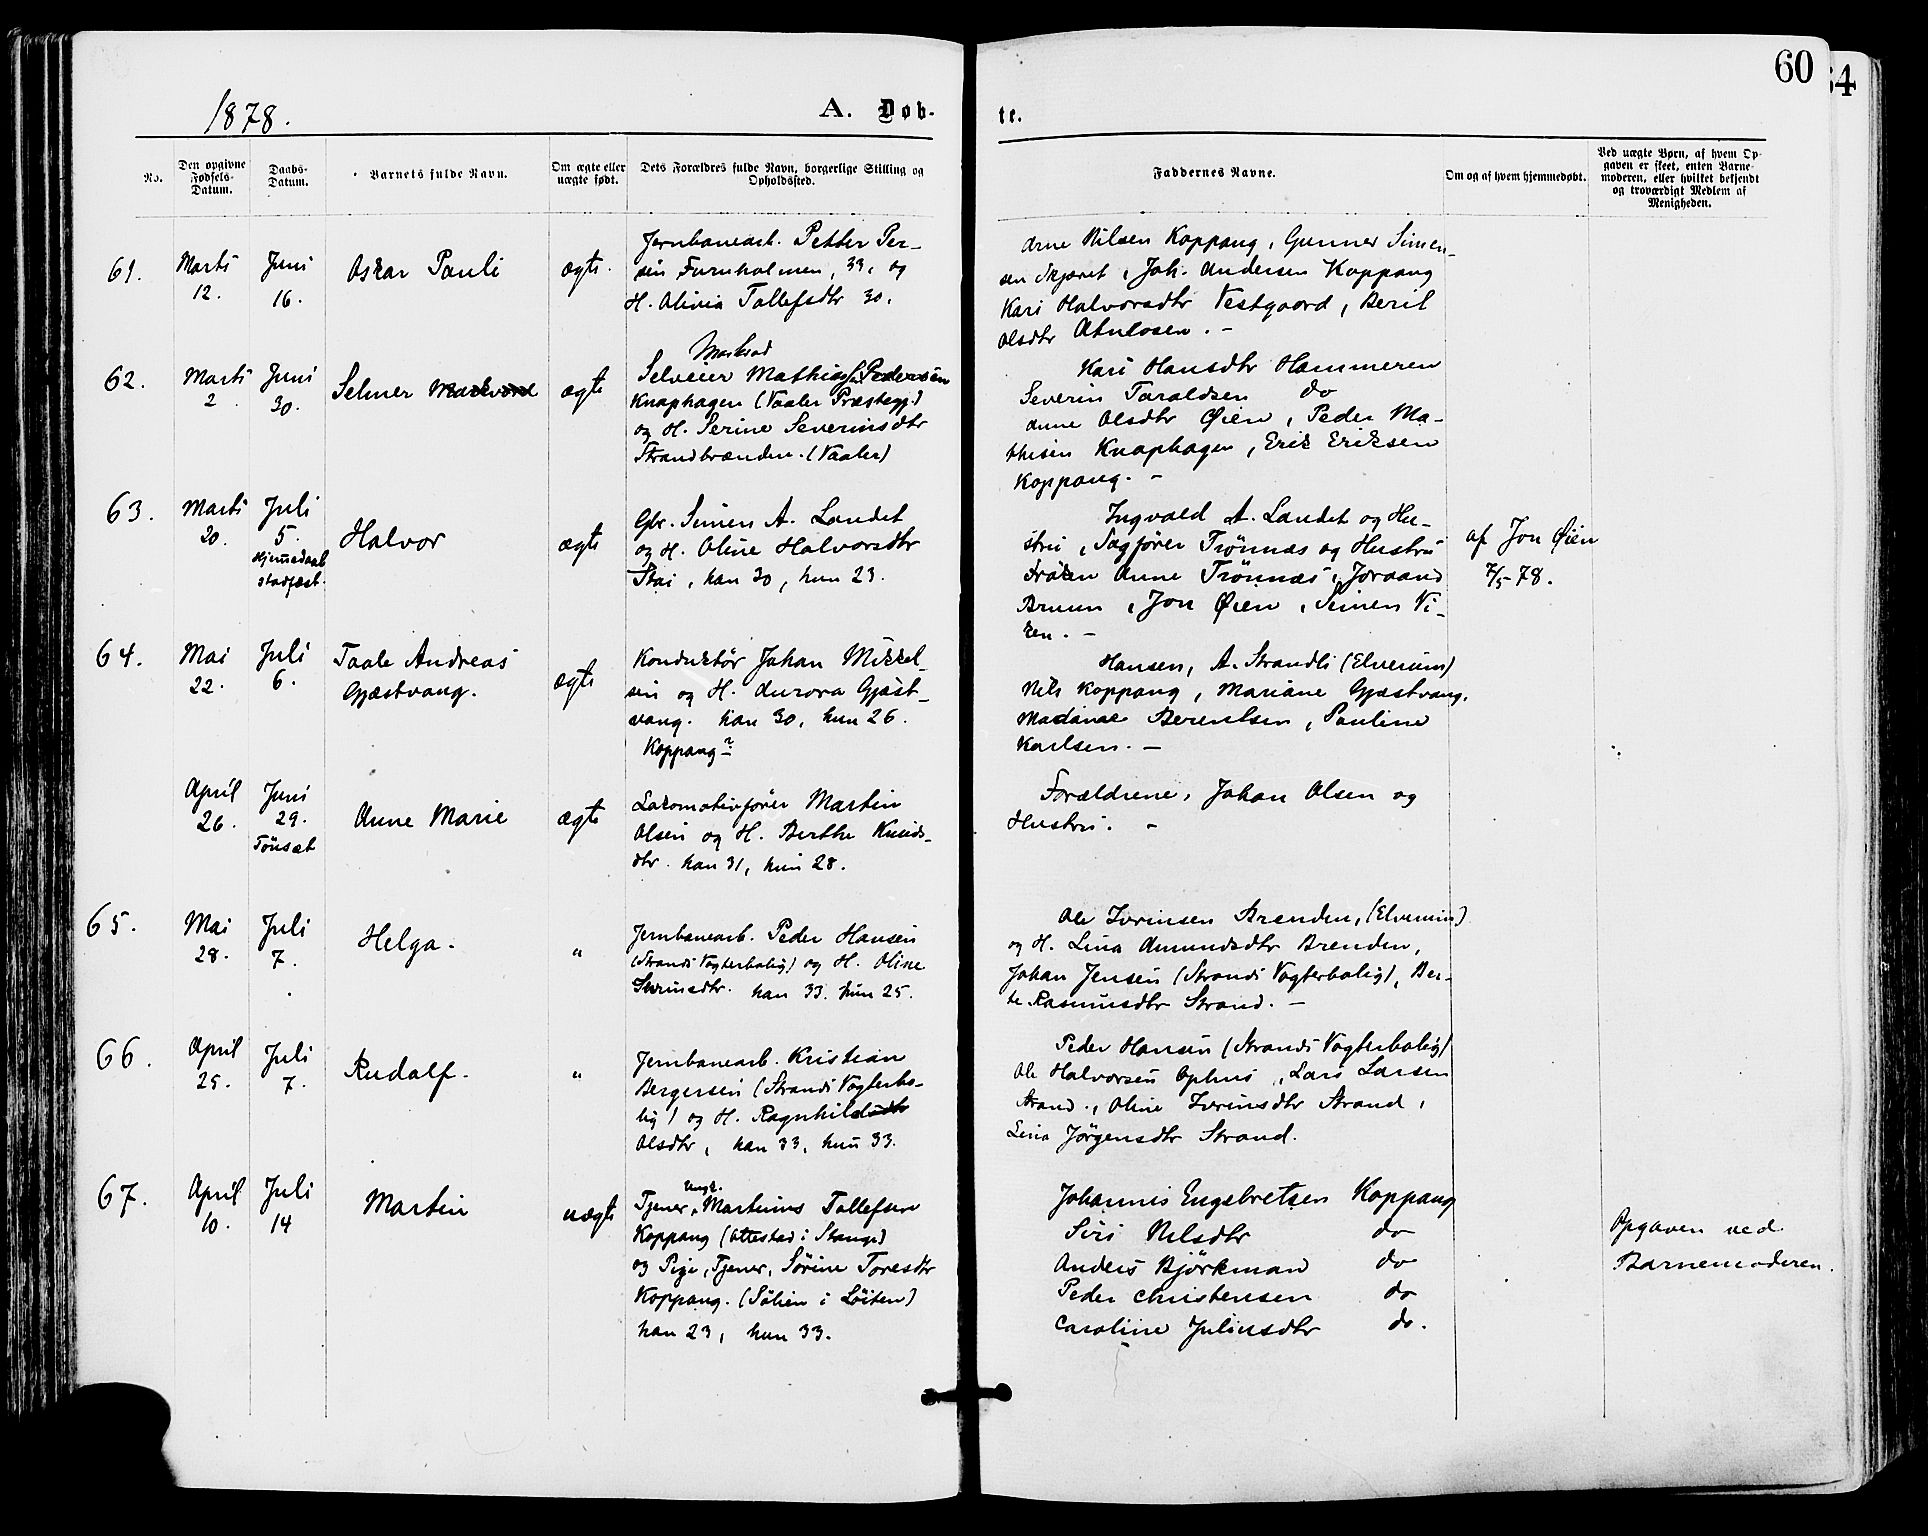 60
64
1878.
A. Døb-
te.
No.
Den opgivne Fødsels-Datum.
Daabs-Datum.
Barnets fulde Navn.
Om ægte eller uægte født.
Dets Forældres fulde Navn, borgerlige Stilling og Opholdssted.
Faddernes Navne.
Om og af hvem hjemmedøbt.
Ved uægte Børn, af hvem Op-
gaven er skeet, enten Barne-
moderen, eller hvilket bekjendt
og troværdigt Medlem af
Menigheden.
61.
Marts
12.
Juni
16.
Oskar Pauli
ægte.
Jernbanearb. Petter Per-
sen Furuholmen, 33, og
H. Olivia Tollefsdtr 30.
Arne Nilsen Koppang, Gunner Simen-
sen Skjæret, Joh. Andersen Koppang
Kari Halvorsdtr Vestgaard, Berit
Olsdtr Atnelosen. -
62.
Marts
2
Juni
30.
Selmer Markvard
ægte
Markvad
Selveier Mathias Pedersen
Knaphagen (Vaaler Præstegj.)
og H. Serine Severinsdtr
Strandbrænden. (Vaaler)
Kari Hansdtr Hammeren
Severin Taraldsen do
Anne Olsdtr Øien, Peder Ma-
thisen Knaphagen, Erik Eriksen
Koppang. -
63.
Marts
20.
Juli
5.
Hjemmedaab
stadfæst.
Halvor
ægte
Gbr. Simen A. Landet
og H. Oline Halvorsdtr
Stai, han 30, hun 23.
Ingvald A. Landet og Hu-
stru, Sagfører Trönnæs og Hustru
Frøken Anne Trönnæs, Joraand
Bruun, Jon Øien, Simen Vi-
ken. -
af Jon Øien
7/5-78.
64.
Mai
22.
Juli
6.
Taale Andreas
Gjæstvang.
ægte
Konduktör Johan Mikkel-
sen og H. Aurora Gjæst-
vang. han 30, hun 26.
Koppang
Hansen, A. Strandli (Elverum)
Nils Koppang, Mariane Gjæstvang.
Madame Berentsen, Pauline
Karlsen. -
April
26.
Juni
29.
Tönset
Anne Marie
ægte
Lokomotivfører Martin
Olsen og H. Berthe Knuds-
dtr. han 31, hun 28.
Forældrene, Johan Olsen og
Hustru. -
65.
Mai
28.
Juli
7.
Helga.
"
Jernbanearb. Peder Hansen
(Strands Vogterbolig) og H. Oline
Iverinsdtr. han 33. hun 25.
Ole Iverinsen Brænden, (Elverum)
og H. Lina Amundsdtr Brenden,
Johan Jensen (Strands Vogterbolig), Ber-
te Rasmusdtr Strand. -
66.
April
25.
Juli
7.
Rudolf.
"
Jernbanearb. Kristian
Bergersen (Strands Vogterbo-
lig) og H. Ragnhild
Olsdtr, han 33, hun 33.
Peder Hansen (Strands Vogterbolig)
Ole Halvorsen Ophus, Lars Larsen
Strand., Oline Iverinsdtr Strand,
Lina Jörgensdtr Strand.
67.
April
10.
Juli
14
Martin
uægte
Ungk.
Tjener, Martinus Tollefsen
Koppang (Ottestad i Stange)
og Pige, Tjener, Sörine Toresdtr
Koppang. (Sölien i Löiten)
han 23, hun 33.
Johannes Engebretsen Koppang
Siri Nilsdtr do
Anders Björkman do
Peder Christensen do
Caroline Juliusdtr do.
Opgaven ved
Barnemoderen.